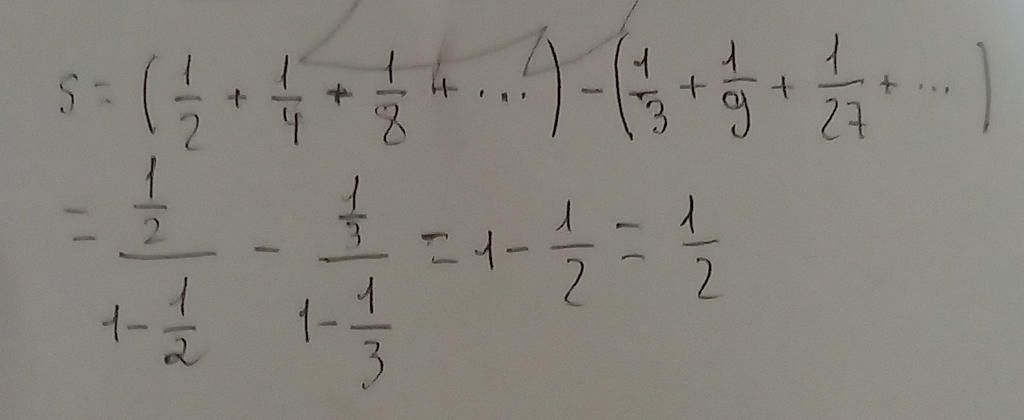 S = (1/2 + 1/4 + 1/8 + ...) - (1/3 + 1/9 + 1/27 + ...)
= (1/2)/(1 - 1/2) - (1/3)/(1 - 1/3) = 1 - 1/2 = 1/2